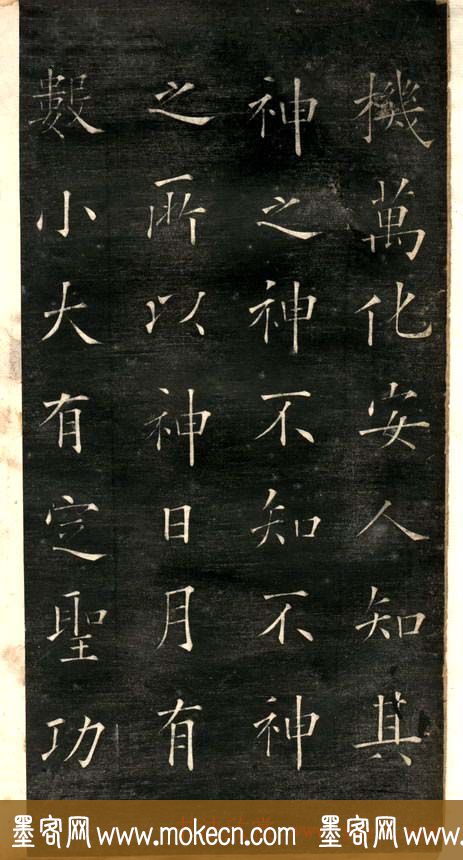 機萬化安人知其
神之神不知不神
之所以神日月有
數小大有定聖功
墨客网www.mokecn.com 墨客网www.mokecn.com